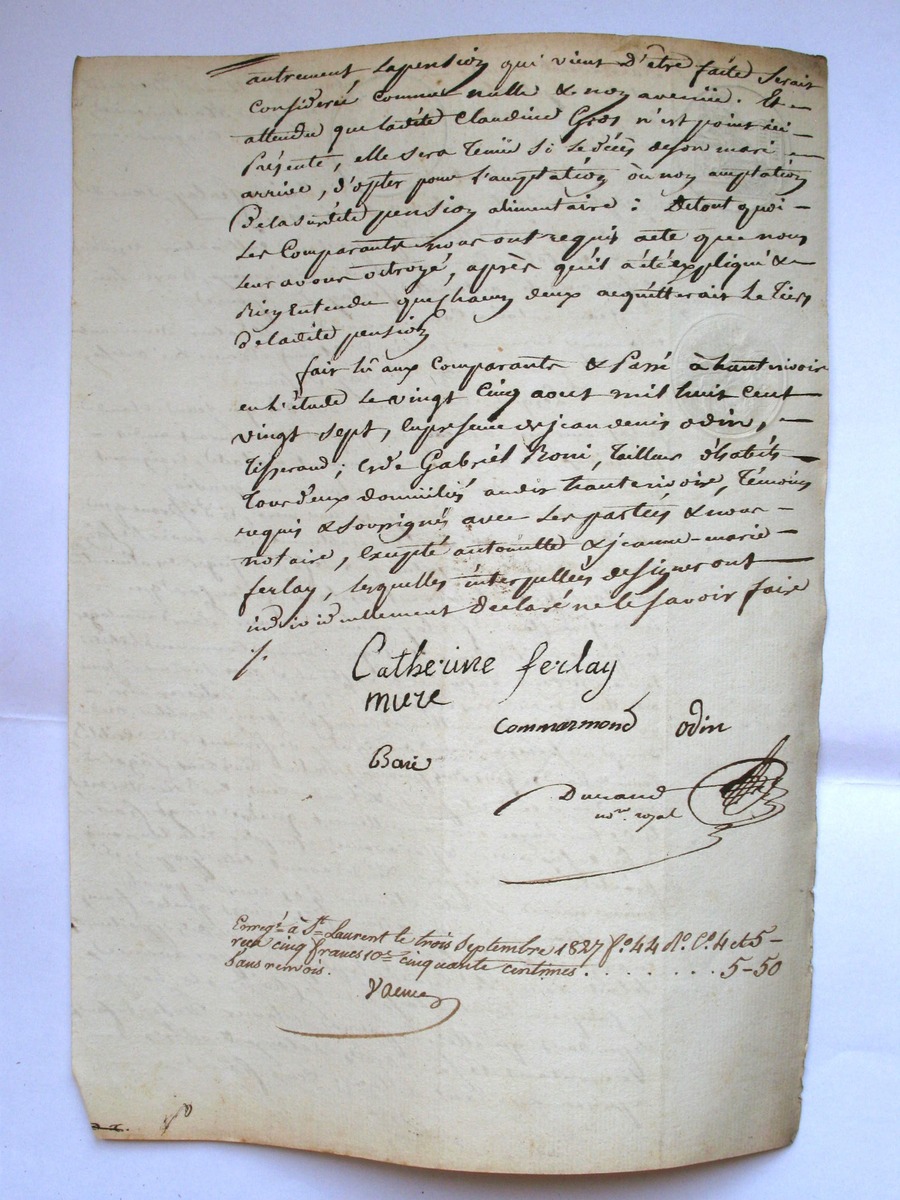 autrement la pension qui vient d'être faite serait
considerée comme nulle & non avenüe. Et
attendu que ladite Claudine Gros n'est point ici
Présente, elle sera tenüe si le décès de son mari
arrive, d'opter pour l'amptation ou non amptation
De la susdite pension alimentaire : De tout quoi
Les Comparants nous ont requis acte que nous
leur avons octroyé, après qu'il a été expliqué &
Bien Entendu que chacun deux acquitterait Le Tiers
de ladite pension
fait lû aux Comparants & Passé à hauterivoire
en L'étude Le vingt Cinq aout mil huit Cent
vingt sept, En présence de jean denis odin,
Tisserand ; & de Gabriël Boni, Tailleur d'habits
Tous deux domiciliés audit hauterivoire, Témoins
requis & soussignés avec Les parties & nous
notaire, Excepté antoinette & jeanne-marie
ferlay, lesquelles interpellées de signer ont
individuellement Déclaré ne le savoir faire
./.
Catherine ferlay
mure
Commarmond odin
Boni
Durand
nore. royal
Enregé. à St. Laurent le trois Septembre 1827 fo. 44 Ro. Co. 4 et 5
reçu cinq francs 10e. cinquante centimes . . . . . . . . 5-50
Sans renvois.